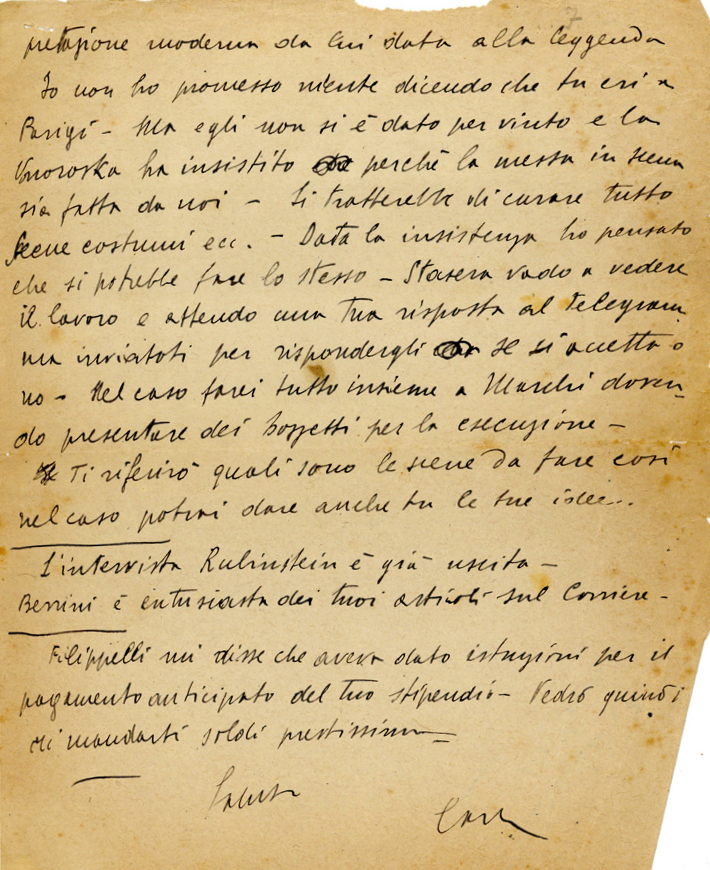 7
pretazione moderna da lui data alla leggenda
Io non ho promesso niente dicendo che tu eri a
Parigi - Ma egli non si è dato per vinto e la
ha insistito perchè la messa in scena
sia fatta da noi - Si tratterebbe di curare tutto
Scene costumi ecc. - Data la insistenza ho pensato
che si potrebbe fare lo stesso - Stasera vado a vedere
il lavoro e attendo una tua risposta al telegram
ma inviatoti per rispondergli se si accetta o
no - Nel caso farei tutto insieme a Marchi doven
do presentare dei bozzetti per la esecuzione -
Ti riferirò quali sono le scene da fare così
nel caso potrai dare anche tu le tue idee..
L'intervista Rubinstein è già uscita -
Berrini è entusiasta dei tuoi articoli sul Corriere -
Filippelli mi disse che aveva dato istruzioni per il
pagamento anticipato del tuo stipendio - Vedrò quindi
di mandarti soldi prestissimo -
Saluti